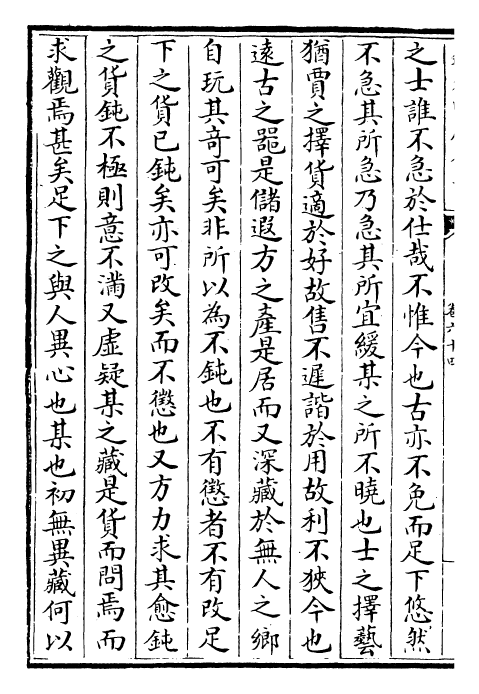 卷六十四
之士誰不急於仕哉不惟今也古亦不免而足下悠然
不急其所急乃急其所宜緩某之所不曉也士之擇藝
猶賈之擇貨適於好故售不遲諧於用故利不狹今也
遠古之器是儲遐方之產是居而又深藏於無人之鄉
自玩其竒可矣非所以為不鈍也不有懲者不有改足
下之貨已鈍矣亦可改矣而不懲也又方力求其愈鈍
之貨鈍不極則意不滿又虛疑某之藏是貨而問焉而
求觀焉甚矣足下之與人異心也某也初無異藏何以